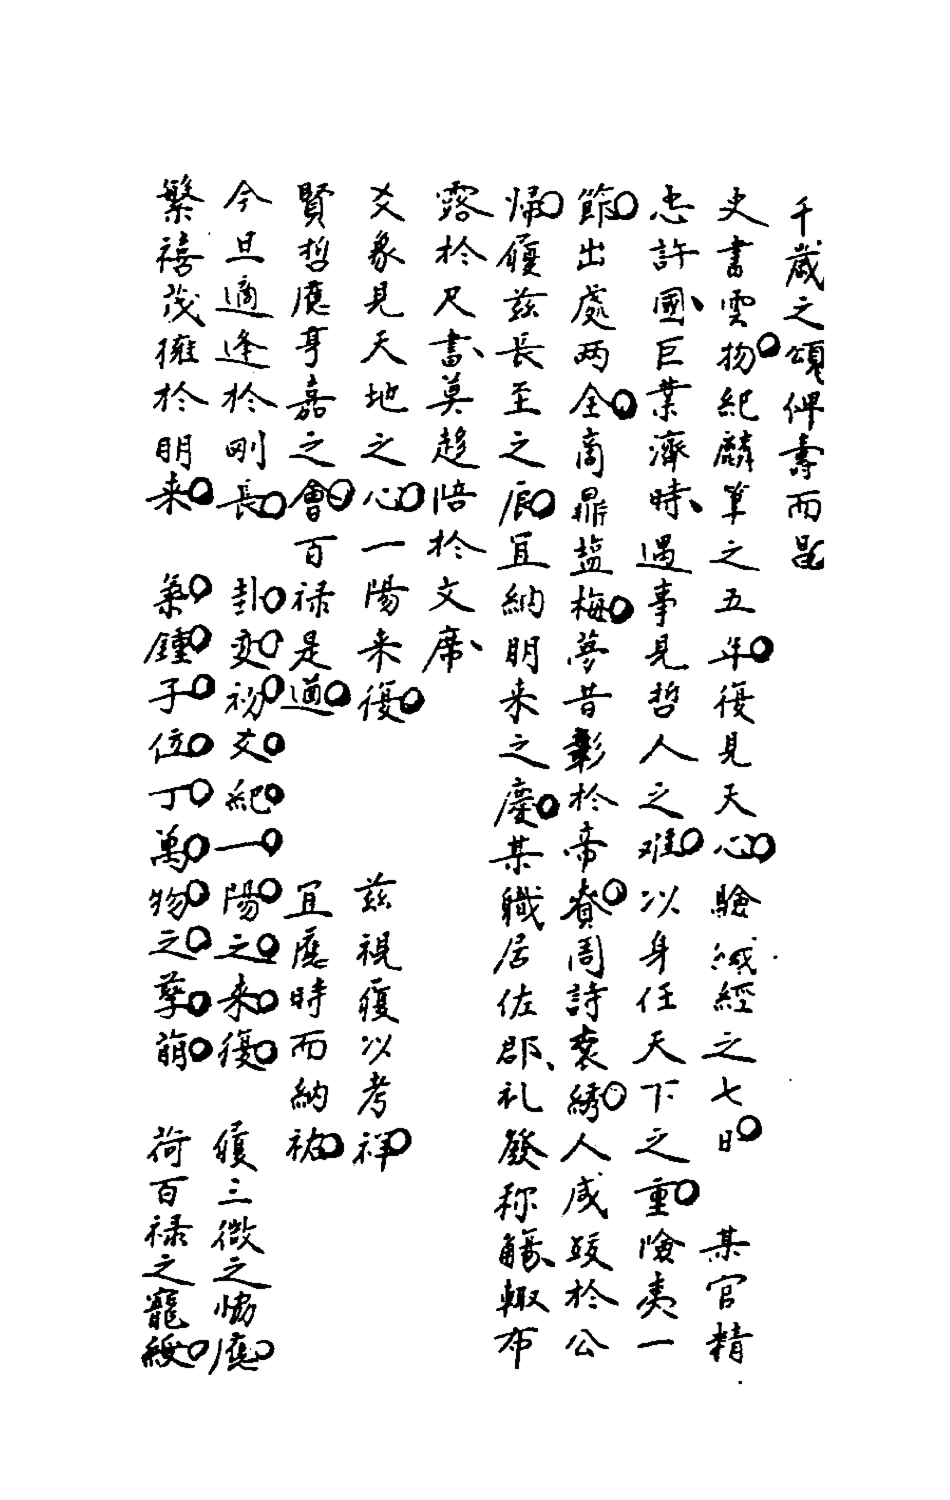 千歲之頌俾壽而昆
史書雲物紀麟筆之五年復見天心驗緘經之七日　某官精
忠許國巨業濟時遇事見哲人之难以身任天下之重險夷一
節出處两全商鼎塩梅夢昔彰於帝賚周詩衮綉人咸跂於公
歸履茲長至之辰宜納明来之慶某職居佐郡礼發称觴輙布
露於尺書莫趍陪於文席
爻象見天地之心一陽来復　茲視履以考祥
賢哲應亨嘉之會百禄是遒　宜應時而納祐
今旦適逢於剛長　卦变初爻紀一陽之来復　履三微之恊應
繁禧茂擁於明来　氣鍾子位丁萬物之孳萌　荷百禄之寵綏